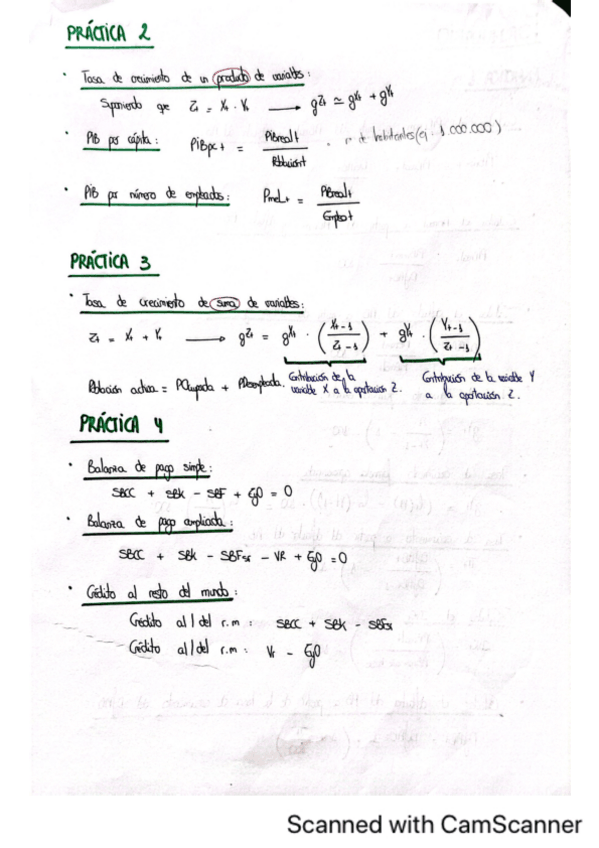 PRÁCTICA 2
· Tasa de crecimiento de un producto de variables:
Suponiendo que Zt = Xt · Yt → gZt ≃ gXt + gYt
· PIB per cápita: PiBpct = PiBrealt / Poblaciónt · nº de habitantes (ej. 1.000.000)
· PiB por número de empleados: PmeLt = PiBrealt / Empleot
PRÁCTICA 3
· Tasa de crecimiento de suma de variables:
Zt = Xt + Yt → gZt = gXt · (Xt-1 / Zt-1) + gYt · (Yt-1 / Zt-1)
Contribución de la variable X a la aportación Z. Contribución de la variable Y a la aportación Z.
Población activa = POcupada +
PRÁCTICA 4
· Balanza de pago simple:
SBCC + SBK - SBF + EyO = 0
· Balanza de pago ampliada:
SBCC + SBK - SBFsr - VR + EyO = 0
· Crédito al resto del mundo:
Crédito al/del r.m: SBCC + SBK - SBFsr
Crédito al/del r.m: Vr - EyO
Scanned with CamScanner